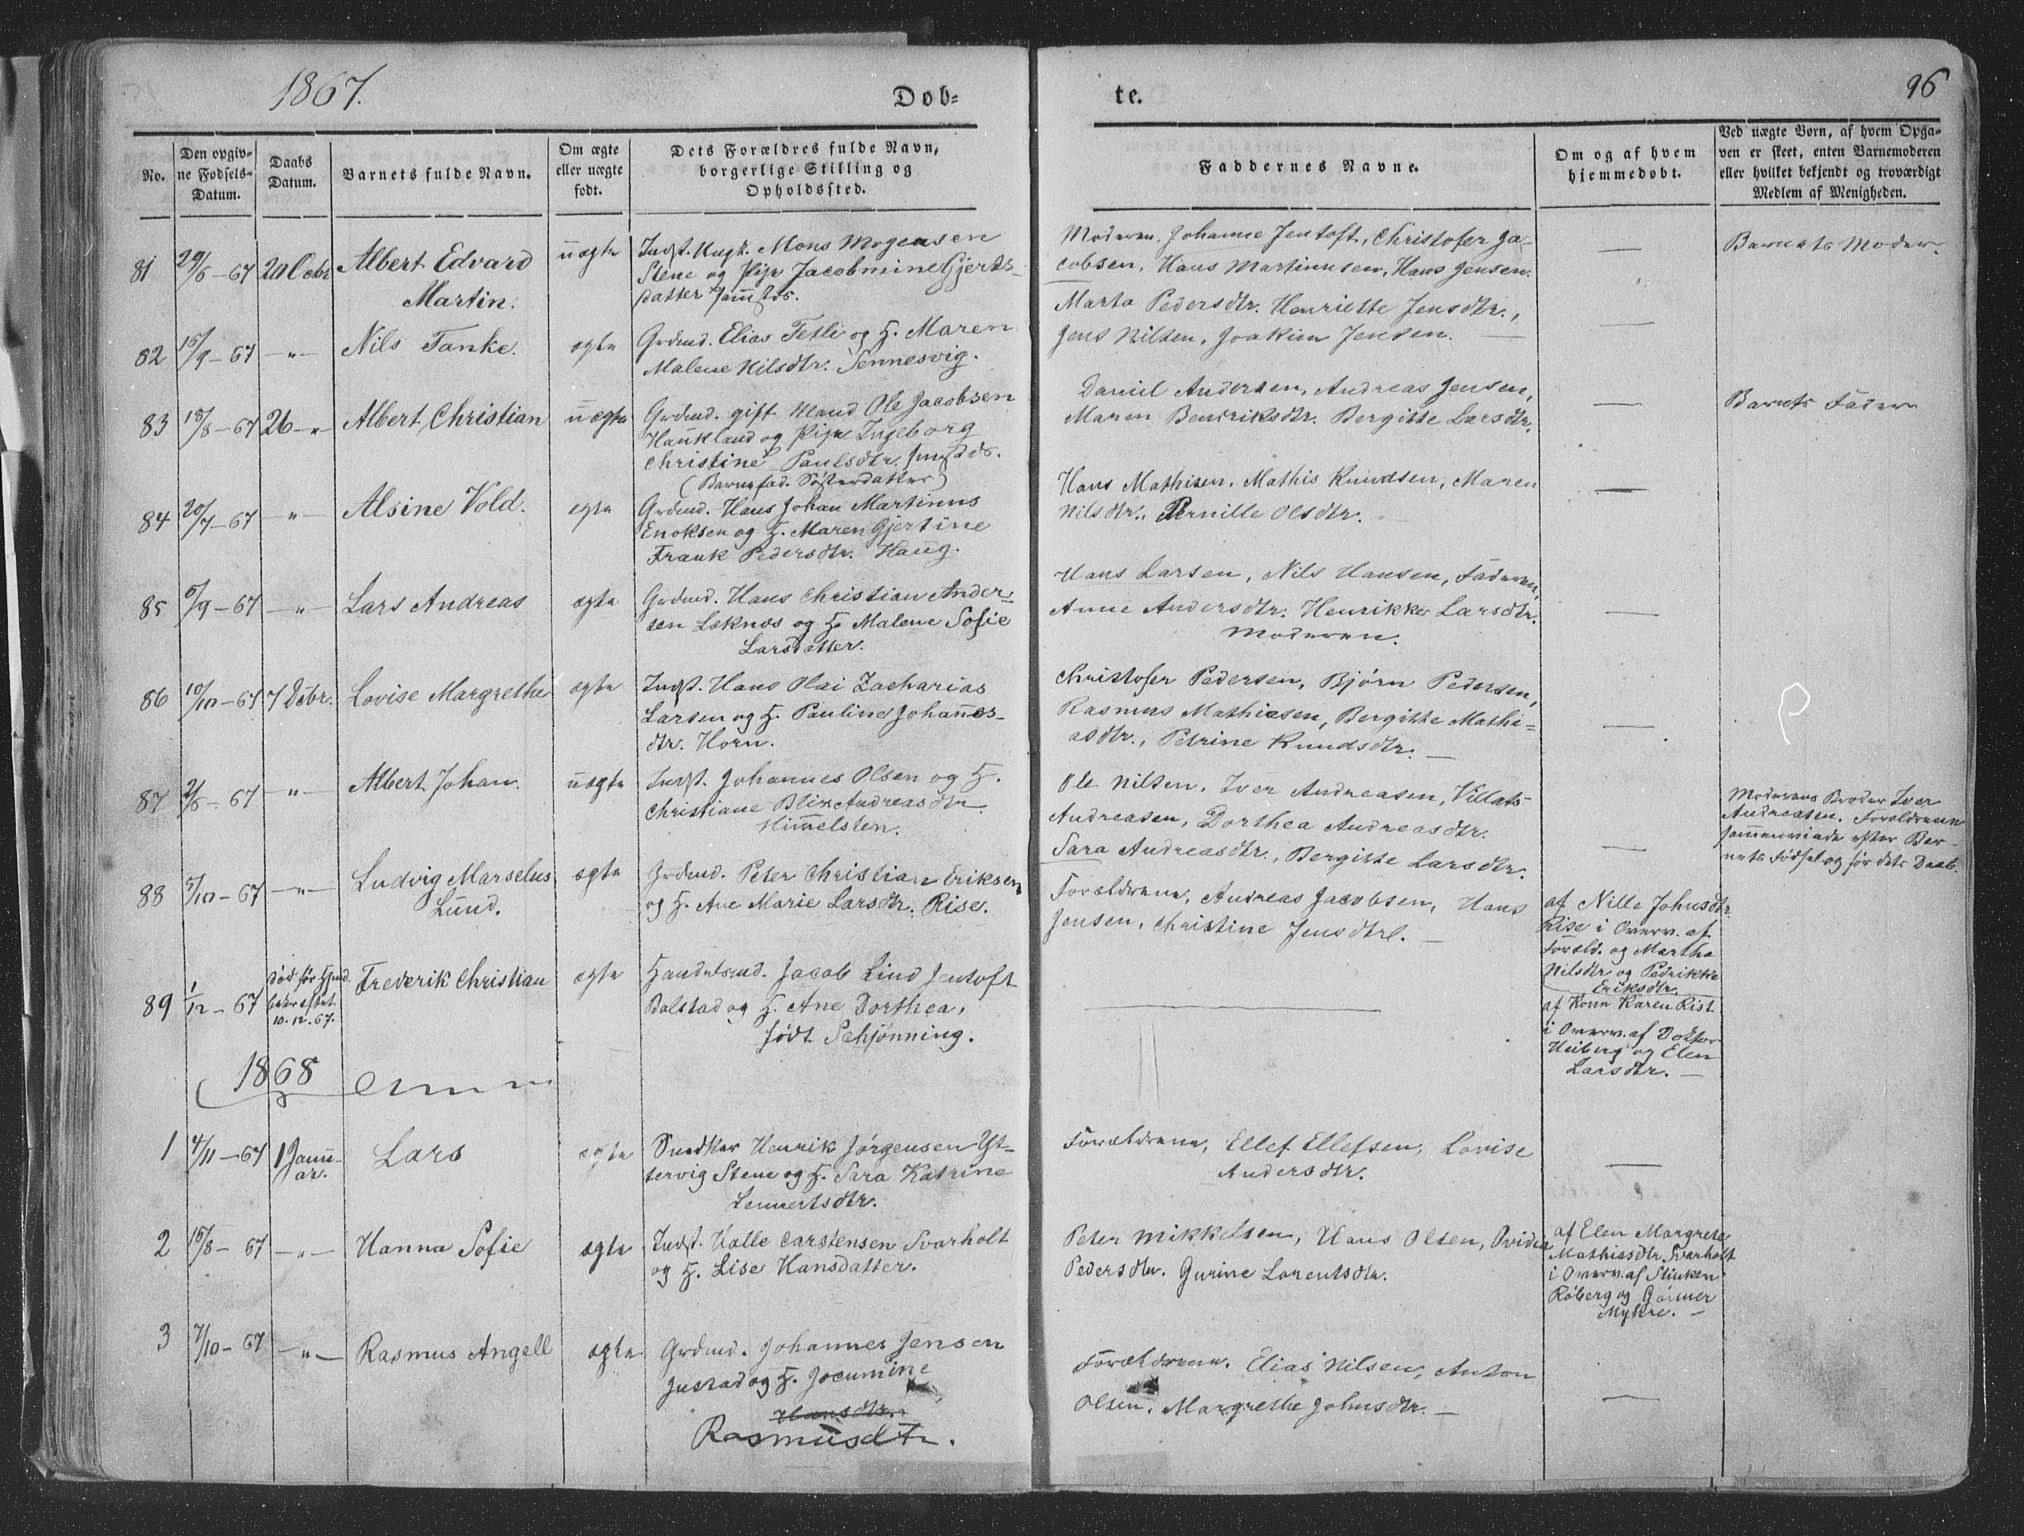 1867.
Døb-
te.
96
No.
Den opgiv-
ne Fødsels-
Datum.
Daabs
Datum.
Barnets fulde Navn.
Om ægte
eller uægte
født.
Dets Forældres fulde Navn,
borgerlige Stilling og
Opholdssted.
Faddernes Navne.
Om og af hvem
hjemmedøbt.
Ved uægte Børn, af hvem Opga-
ven er skeet, enten Barnemoderen
eller hvilket bekjendt og troværdigt
Medlem af Menigheden.
81 29/6 - 67 20 Octbr Albert Edvard
Martin.
uægte
Indst. Ungk. Mons Mogensen
Stene og Pige Jacobmine Gjerts-
datter
Moderen. Johanne Jentoft, Christofer Ja-
cobsen, Hans Martinusen, Hans Jensen.
—
Barnets Moder
82 15/9 - 67 - " - Nils Tanke.
ægte
Grdmd. Elias Tetli og H. Maren
Malene Nilsdtr. Sennesvig.
Marta Pedersdtr. Henriette Jensdtr.,
Jens Nilsen, Joakim Jensen. —
—
83 18/8 - 67 26 - " Albert Christian
uægte
Grdmd. gift Mand Ole Jacobsen
Haukland og Pige Ingeborg
Christine Paulsdtr. smstds.
(Barnefad. Søsterdatter)
Daniel Andersen, Andreas Jensen,
Maren Bendriksdtr. Bergitte Larsdtr.
—
Barnets Fader
84 20/7 - 67 " Alsine Vold.
ægte
Grdmd. Hans Johan Martinus
Enoksen og H. Maren Gjertine
Frank Pedersdtr. Haug.
Hans Mathisen, Mathis Knudsen, Maren
Nilsdtr., Pernille Olsdtr.
—
85 6/9 - 67 - " - Lars Andreas
ægte
Grdmd. Hans Christian Ander-
sen Leknes og H. Malene Sofie
Larsdatter.
Hans Larsen, Nils Hansen, Faderen,
Anne Andersdtr. Henrikke Larsdtr.
Moderen.
—
86 10/10 - 67 7 Dcbr. Lovise Margrethe
ægte
Indst. Hans Olai Zacharias
Larsen og H. Pauline Johannes-
dtr. Horn.
Christofer Pedersen, Bjørn Pedersen,
Rasmus Mathiesen, Bergitte Mathi-
asdtr., Petrine Knudsdtr. —
—
87 2/6 - 67 - " - Albert Johan.
uægte
Indst. Johannes Olsen og H.
Christiane Blix Andreasdtr
Himmelsten.
Ole Nilsen, Iver Andreasen, Villats
Andreasen, Dorthea Andreasdtr.
Sara Andreasdtr., Bergitte Larsdtr.
—
Moderens Broder Iver
Andreasen. Forældrene
sammenviede efter Bar-
nets Fødsel og før dets Daab.
88 5/10 - 67 - " - Ludvig Marselus
Lund.
ægte
Grdmd. Peter Christian Eriksen
og H. Ane Marie Larsdtr. Rise.
Forældrene, Andreas Jacobsen, Hans
Jensen, Christine Jensdtr. —
af Nille Johnsdtr.
Rise i Overv. af
Foræld. og Martha
Nilsdtr og Pedrikke
Eriksdtr.
89 1/12 - 67 død før
10-12-67.
Frederik Christian
ægte
Handelsmd. Jacob Lind Jentoft
Bolstad og H. Ane Dorthea,
født Schjønning.
af Kone Karen Rist
i Overv. af Doktor
Heiberg og Elen
Larsdtr. —
1868
1 4/11 - 67 1 Janu-
ar.
Lars
ægte
Snedker Henrik Jørgensen Yt-
tervig Stene og H. Sara Katrine
Lennertsdtr.
Forældrene, Ellef Ellefsen, Lovise
Andersdtr.
—
2 15/8 - 67 - " - Hanna Sofie
ægte
Indst. Halle Carstensen Svarholt
og H. Lise Hansdatter.
Peter Mikkelsen, Hans Olsen,
Pedersdtr. Gurine Lorentsdtr.
af Elen Margrete
Mathiasdtr. Svarholt
i Overv. af
Røberg og Gunner
Myhre. —
3 7/10 - 67 - " - Rasmus Angell
ægte
Grdmd. Johannes Jensen
Justad og H. Jocumine
Hansdtr.
Rasmusdtr.
Forældrene. Elias Nilsen, Anton
Olsen. Margrethe Johnsdtr. —
—